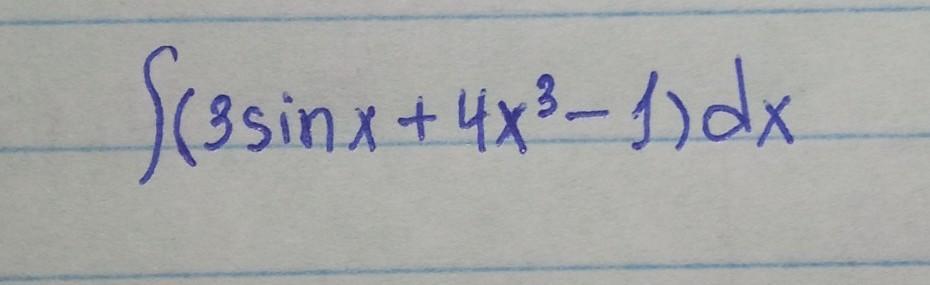 ∫(3sinx+4x³-1)dx